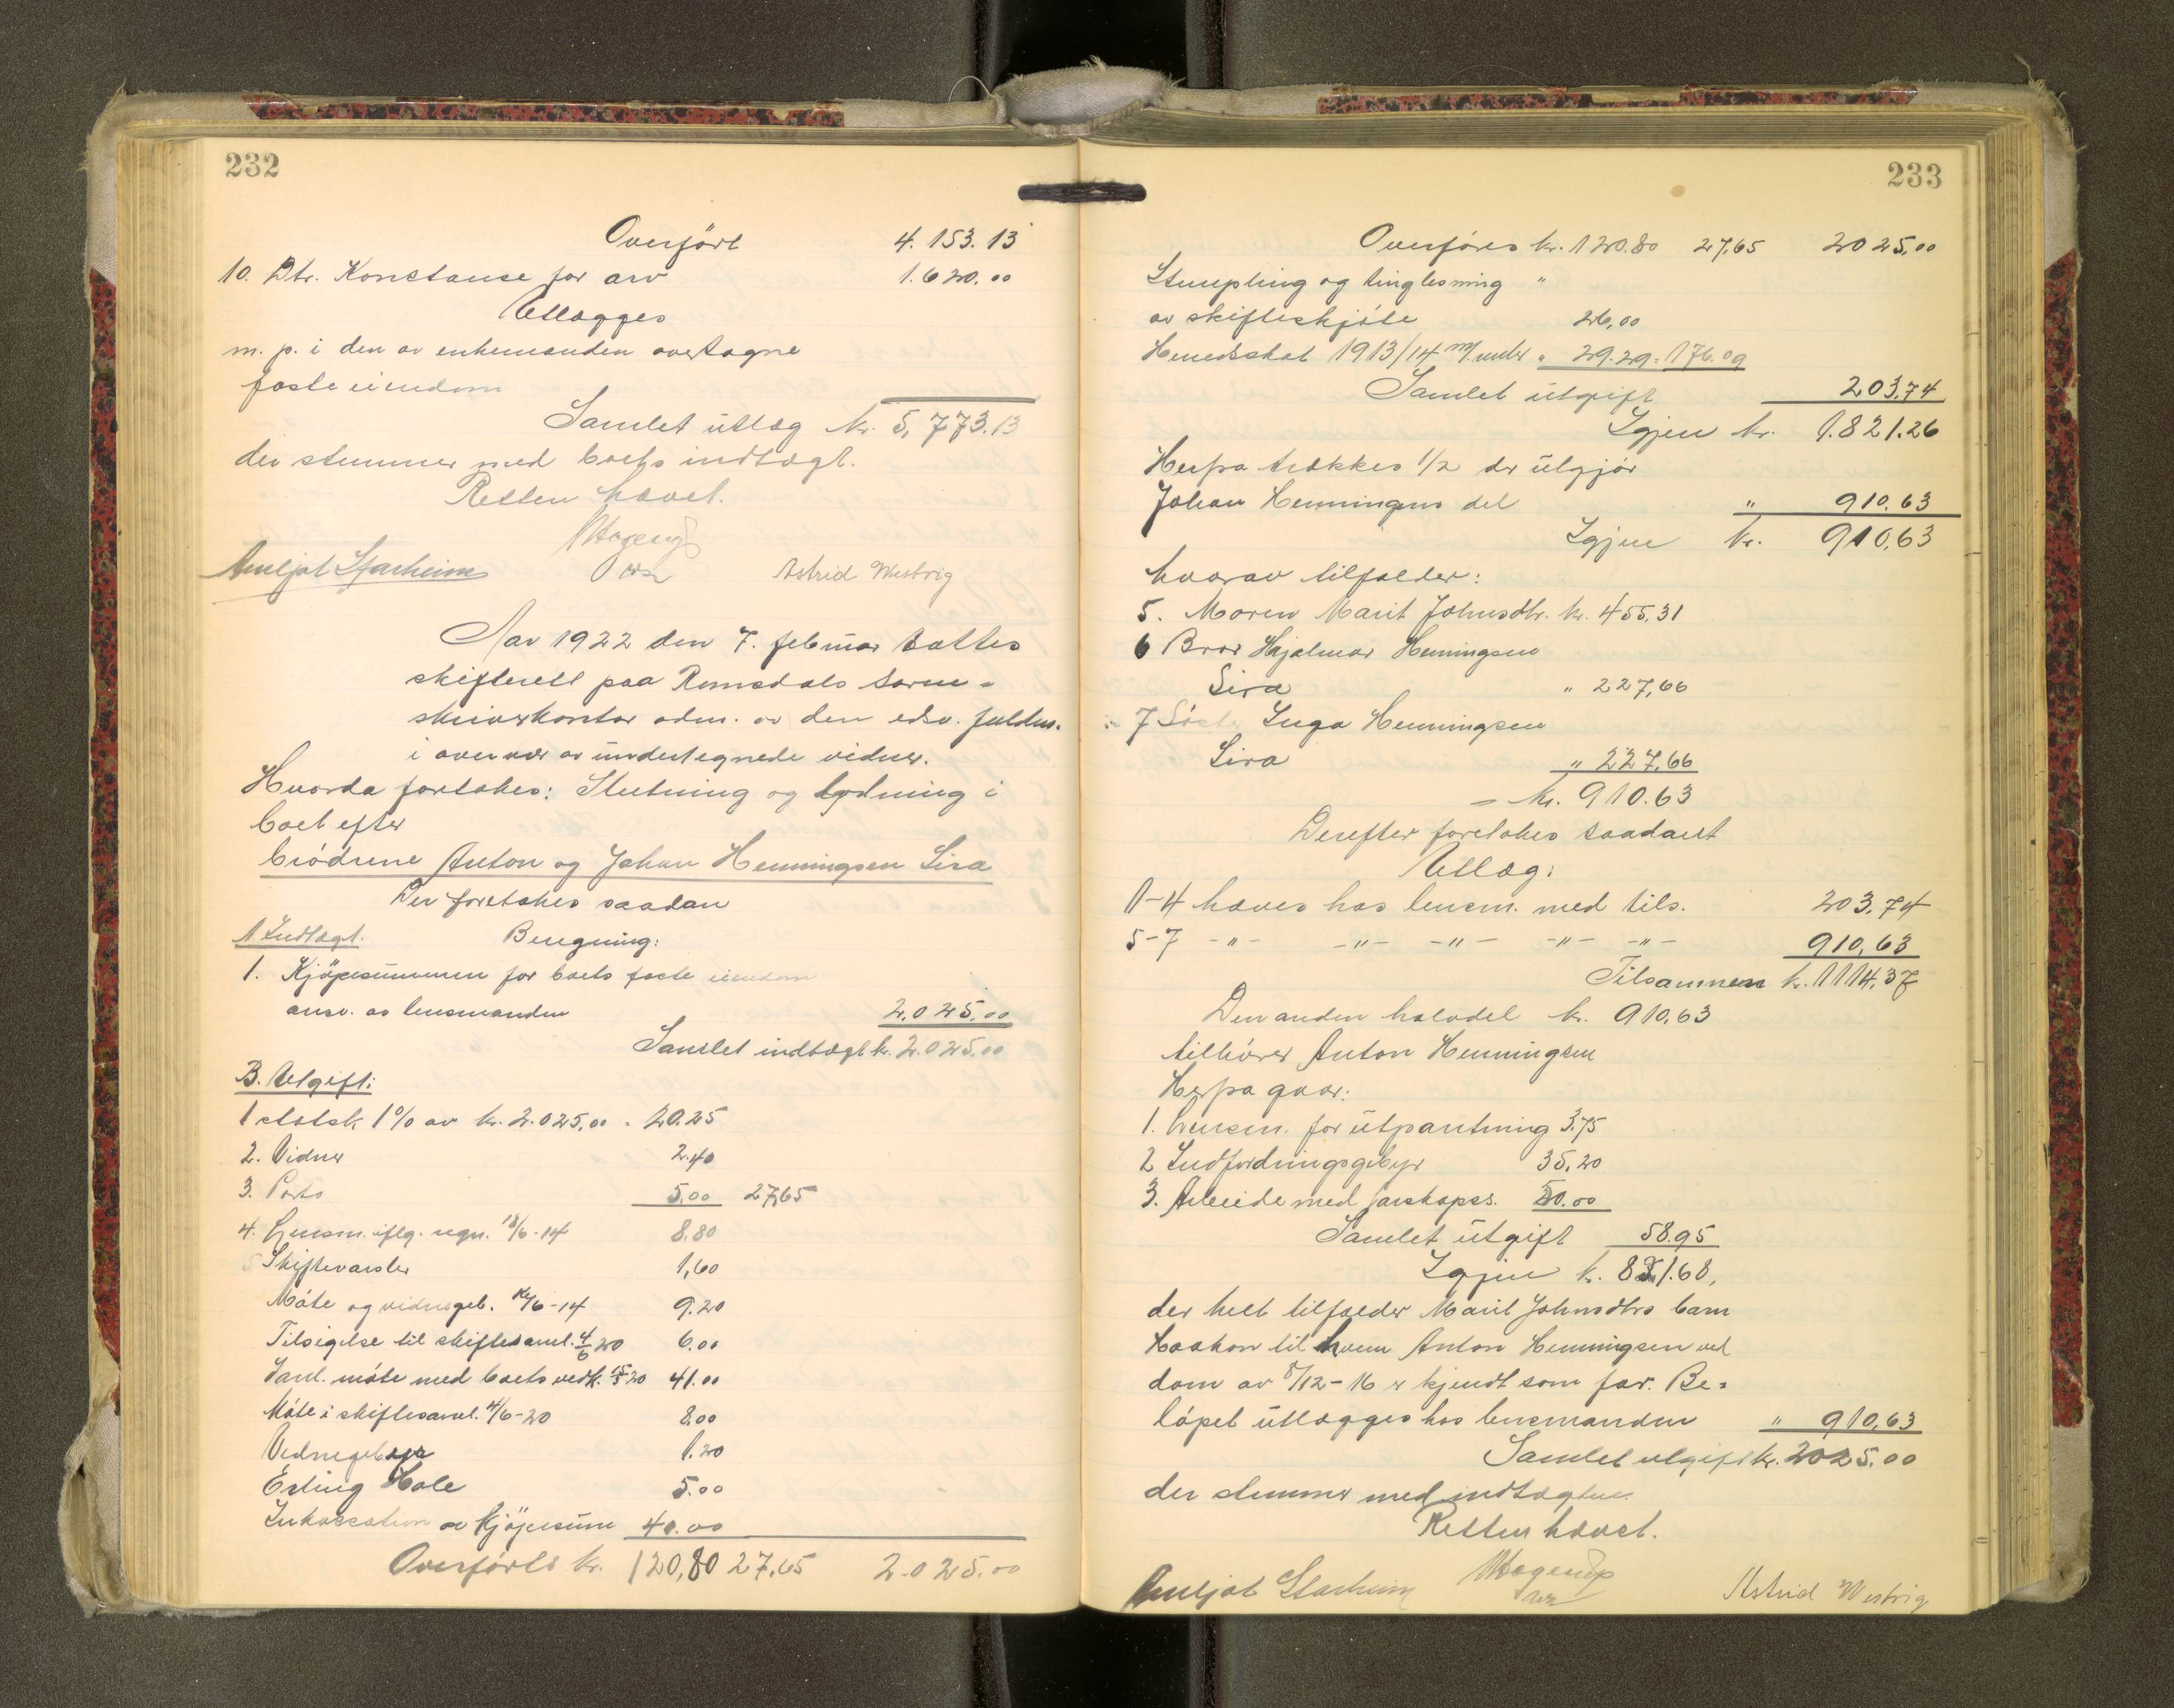 232
Overført 4.153.13
10. Dtr. Konstanse for arv 1.620.00
Utlægges
m. p. i den av enkemanden overtagne
faste eiendom
Samlet utlæg kr. 5,773.13
der stemmer med boets indtægt.
Retten hævet.
Arnljot Starheim Astrid Westvig
Aar 1922 den 7. februar sattes
skifterett paa Romsdals soren-
skriverkontor adm. av den edsv. fuldm.
i overvær av undertegnede vidner.
Hvorda foretokes: Slutning og lodning i
boet efter
brödrene Anton og Johan Henningsen Lira
Der foretokes saadan
A Indtægt. Beregning:
1. Kjöpesummen for boets faste eiendom
ansv. av lensmanden 2.025.00
Samlet indtægt kr. 2.025.00
B. Utgift:
1 statsk. 1% av kr. 2.025,00 . 20.25
2. Vidner 2.40
3. Porto 5.00 27,65
4. Lensm. iflg. regn. 18/6-14 8.80
5 Skiftevarsler 1,60
Möte og vidnegeb. 16/6-14 9.20
Tilsigelse til skiftesaml. 4/6 20 6.00
møte med boets vedk. 20 41.00
Möte i skiftesaml. 4/6-20 8.00
Vidnegebyr 1.20
Erling Hole 5.00
Inkassation av kjöpesum 40.00
Overførtes kr. 120,80 27,65 2.025.00
233
Overföres kr. 120.80 27,65 2025,00
Stempling og tinglesning "
av skifteskjöte 26,00
Herredsskat 1913/14 m/renter " 29.29 = 176.09
Samlet utgift 203,74
Igjen kr. 1.821.26
Herfra trækkes 1/2 der utgjör
Johan Henningsens del " 910.63
Igjen kr. 910,63
hvorav tilfalder:
5. Moren Marit Johnsdtr. kr. 455,31
6 Bror Hjalmar Henningsen
Lira " 227,66
7 Söster Inga Henningsen
Lira " 227,66
= kr. 910.63
Derefter foretokes saadant
Utlæg:
1-4 hæves hos lensm. med tils. 203.74
5-7 -"- -"- -"- -"- -"- 910,63
Tilsammen kr. 1114,37
Den anden halvdel kr. 910,63
tilhörer Anton Henningsen
Herfra gaar:
1. Lensm. for utpantning 3.75
2 Indfordringsgebyr 35,20
3. Arbeide med farskapss. 20.00
Samlet utgift 58.95
Igjen kr. 851.68,
der helt tilfalder Marit Johnsdtrs barn
Haakon til hvem Anton Henningsen ved
dom av 8/12-16 er kjendt som far. Be-
löpet utlægges hos lensmanden " 910,63
Samlet utgift kr. 2025.00
der stemmer med indtægten.
Retten hævet.
Arnljot Starheim Astrid Westvig